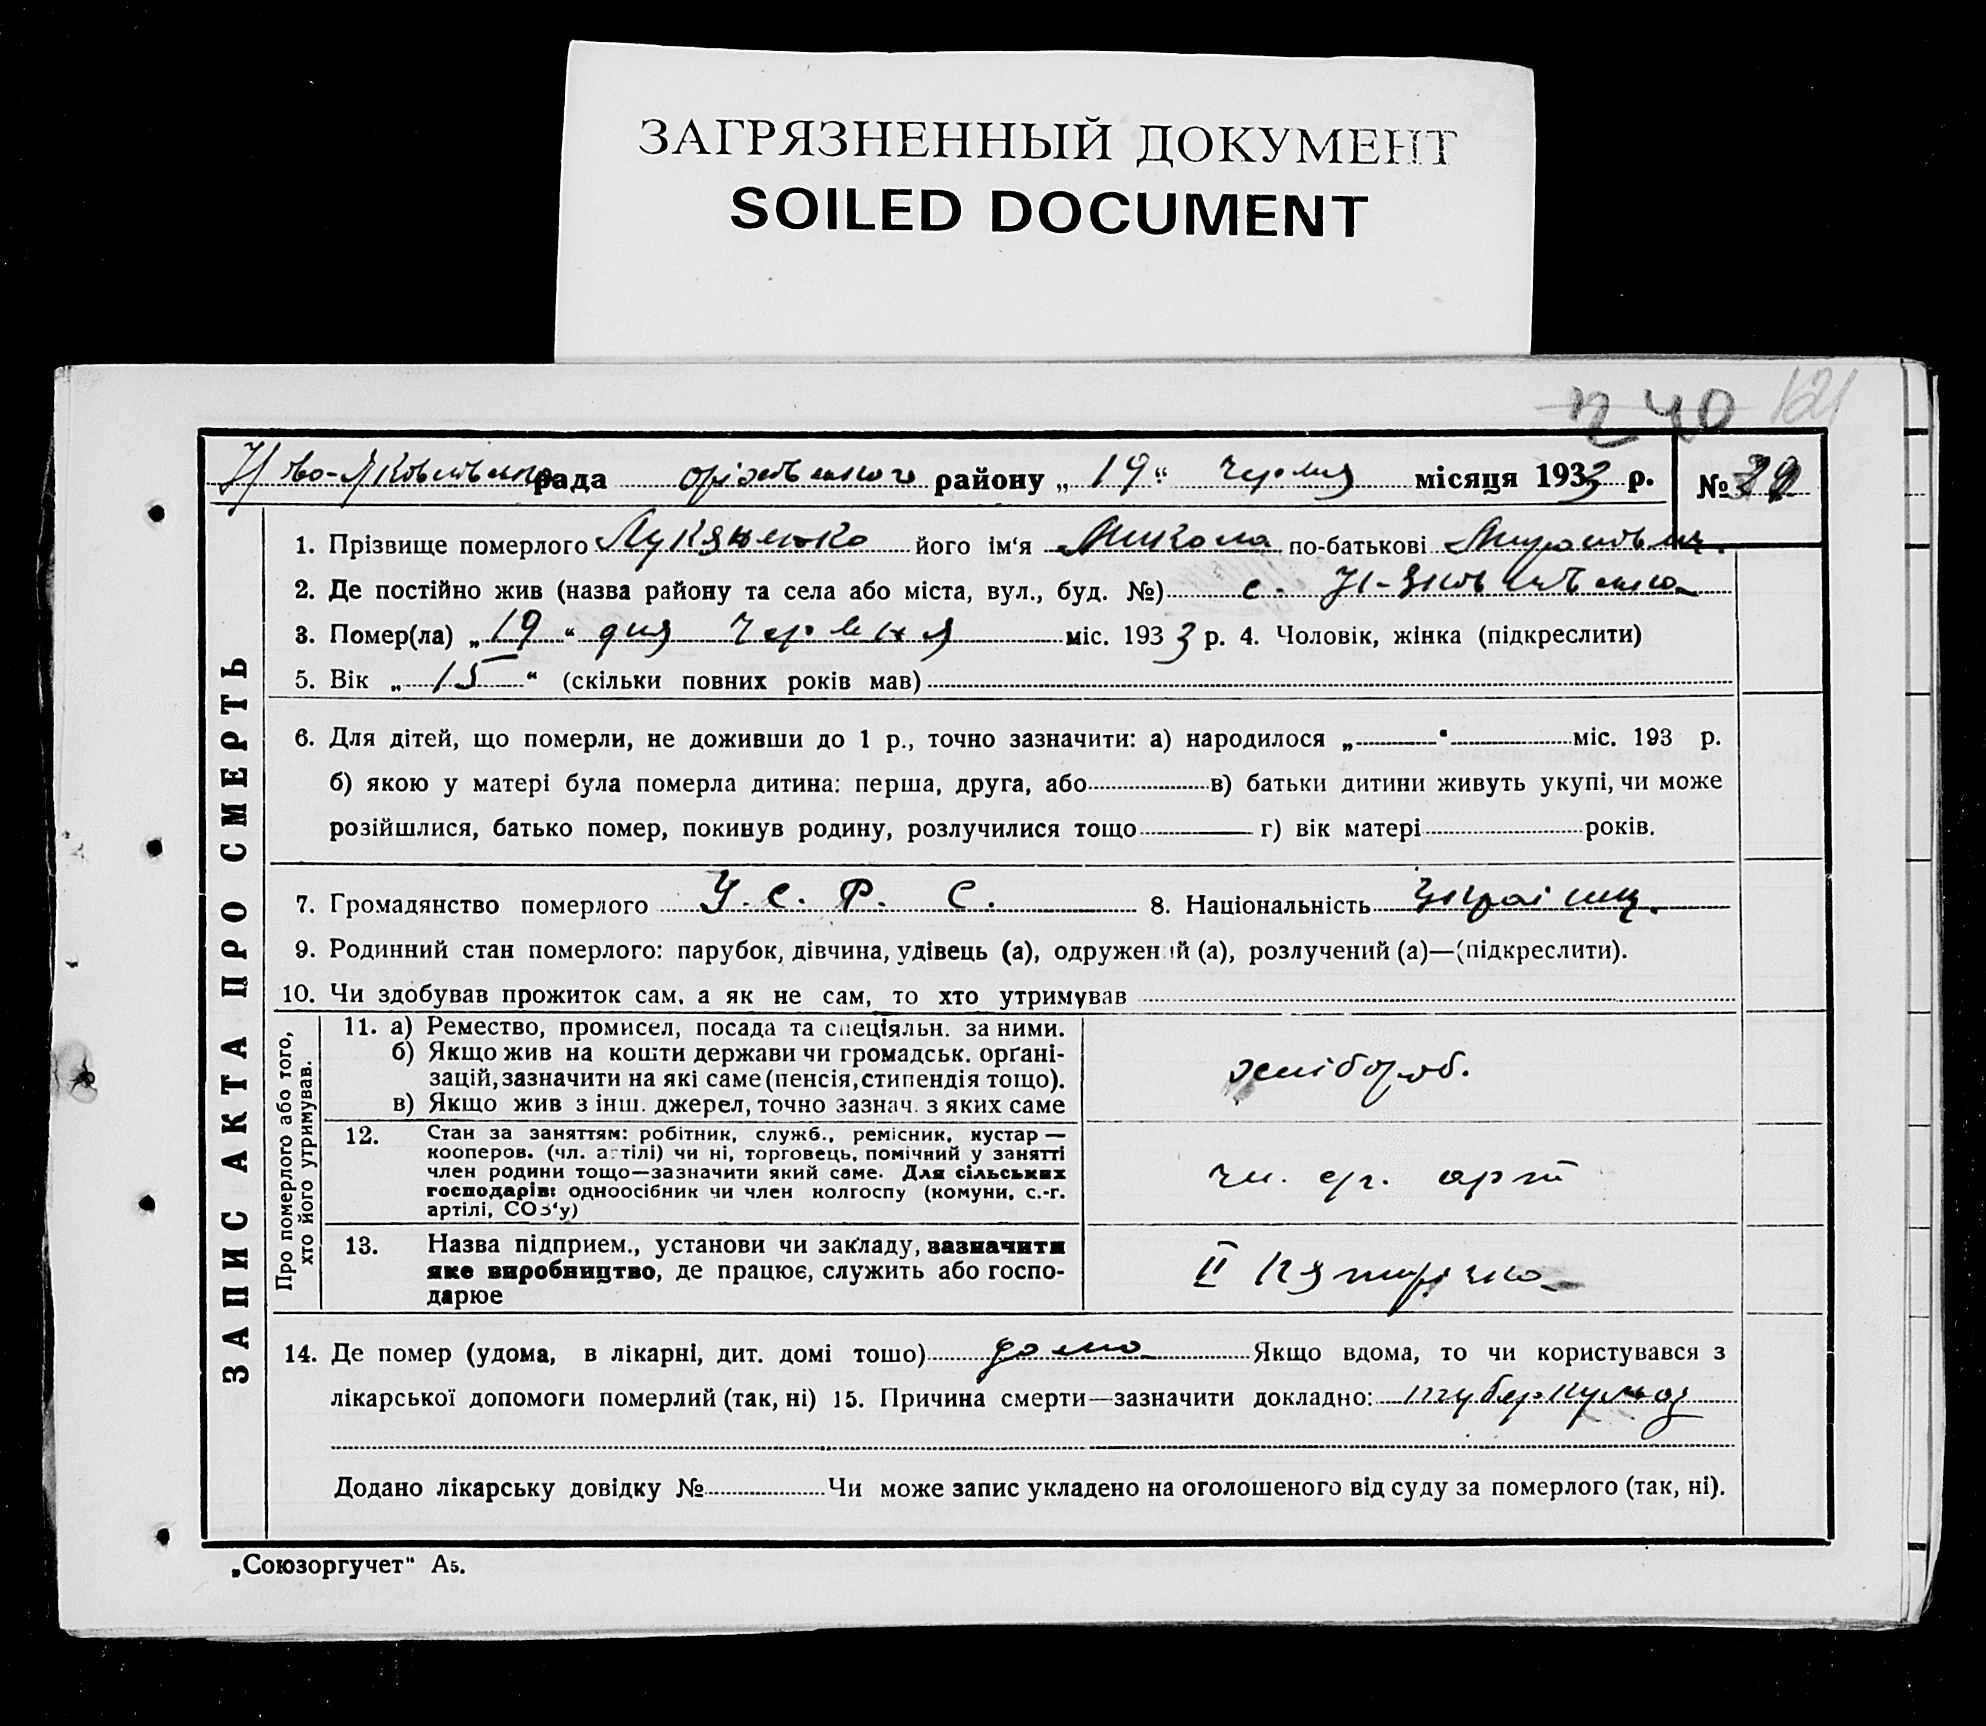 ЗАГРЯЗНЕННЫЙ ДОКУМЕНТ
SOILED DOCUMENT
40 121
Ново-Яковлівська рада оріхівського району „19“ червня місяця 1933 р. №
1. Прізвище померлого Лукяненко його ім'я Микола по-батькові
2. Де постійно жив (назва району та села або міста, вул., буд. №) с. Н-Яковлівка
3. Помер(ла) „19“ дня Червня міс. 1933 р. 4. Чоловік, жінка (підкреслити)
5. Вік „15“ (скільки повних років мав)
6. Для дітей, що померли, не доживши до 1 р., точно зазначити: а) народилося „ “ міс. 193 р.
б) якою у матері була померла дитина: перша, друга, або в) батьки дитини живуть укупі, чи може
розійшлися, батько помер, покинув родину, розлучилися тощо г) вік матері років.
7. Громадянство померлого У. С. Р. С. 8. Національність Україн.
9. Родинний стан померлого: парубок, дівчина, удівець (а), одружений (а), розлучений (а)—(підкреслити).
10. Чи здобував прожиток сам, а як не сам, то хто утримував
ЗАПИС АКТА ПРО СМЕРТЬ
Про померлого або того,
хто його утримував.
11. а) Ремество, промисел, посада та спеціяльн. за ними.
б) Якщо жив на кошти держави чи громадськ. орґані-
зацій, зазначити на які саме (пенсія, стипендія тощо).
в) Якщо жив з інш. джерел, точно зазнач. з яких саме
хлібороб.
12. Стан за заняттям: робітник, служб., ремісник, кустар —
кооперов. (чл. артілі) чи ні, торговець, помічний у занятті
член родини тощо—зазначити який саме. Для сільських
господарів: одноосібник чи член колгоспу (комуни, с.-г.
артілі, СОЗ'у)
чл. с/г. арт
13. Назва підприєм., установи чи закладу, зазначити
яке виробництво, де працює, служить або госпо-
дарює
II Пятирічка
14. Де помер (удома, в лікарні, дит. домі тощо) дома Якщо вдома, то чи користувався з
лікарської допомоги померлий (так, ні) 15. Причина смерти—зазначити докладно: туберкульоз
Додано лікарську довідку № Чи може запис укладено на оголошеного від суду за померлого (так, ні).
„Союзоргучет" А5.